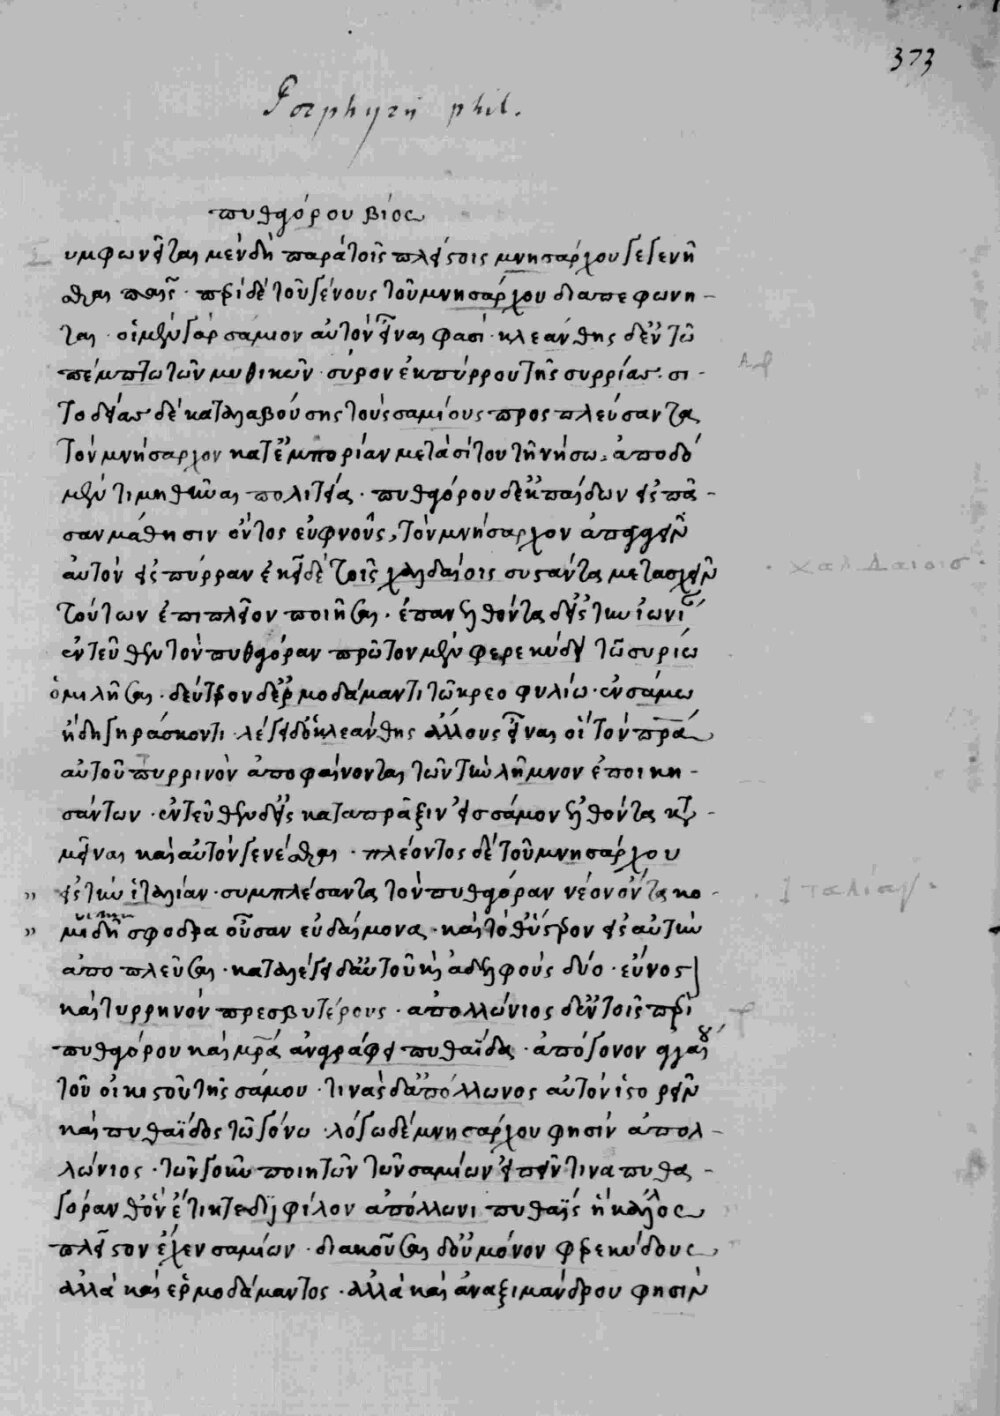 373
Porphyrii phil.
πυθαγόρου βίος
υμφωνεῖται μὲν δὴ παρὰ τοῖς πλείστοις μνησάρχου γεγενῆ
σθαι παῖς· περὶ δὲ τοῦ γένους τοῦ μνησάρχου διαπεφώνη-
ται· οἱ μὲν γὰρ σάμιον αὐτὸν εἶναι φασί· κλεάνθης δ' ἐν τῶ
πέμπτω τῶν μυθικῶν· σύρον ἐκ πύρρου τῆς συρρίας· σι-
τοδείας δὲ καταλαβούσης τοὺς σαμίους προσπλεύσαντα
τὸν μνήσαρχον κατ' ἐμπορίαν μετὰ σίτου τῆ νήσω, ἀποδό
μεν τιμηθῆναι πολιτεία· πυθαγόρου δ' ἐκ παίδων εἰς πᾶ-
σαν μάθησιν ὄντος εὐφυοῦς, τὸν μνήσαρχον ἀπαγαγεῖν
αὐτὸν εἰς πύρραν ἐκεῖ δὲ τοῖς χαλδαίοις συστάντα μετασχεῖν
χαλδαίοις
τούτων ἐπιπλεῖον ποιῆσαι· ἐπανελθόντα δ' εἰς τὴν ἰωνίαν
ἐντεῦθεν τὸν πυθαγόραν πρῶτον μὲν φερεκύδη τῶ συρίω
ὁμιλῆσαι· δεύτερον δ' ἑρμοδάμαντι τῶ κρεοφυλίω· ἐν σάμω
ἤδη γηράσκοντι· λέγει δ' ὁ κλεάνθης ἄλλους εἶναι οἳ τὸν πρα
αὐτοῦ τυρρινὸν ἀποφαίνονται τῶν τὴν λῆμνον ἐποικη-
σάντων· ἐντεῦθεν δ' εἰς κατὰ πρᾶξιν εἰς σάμον ἐλθόντα κτ -
μεῖναι καὶ αὐτὸν γενέσθαι· πλέοντος δὲ τοῦ μνησάρχου
εἰς τὴν ἰταλίαν· συμπλέσαντα τὸν πυθαγόραν νέον ὄντα κο-
Ἰταλίαν.
μιδῆ σφόδρα οὖσαν εὐδαίμονα· καὶ τὸ θ' ὕστερον εἰς αὐτὴν
ἀποπλεῦσαι· καταλέγει δ' αὐτοῦ καὶ ἀδελφοὺς δύο· εὔνος
καὶ τυρρηνὸν πρεσβυτέρους· ἀπολλώνιος δ' ἐν τοῖς περὶ
πυθαγόρου καὶ μρα ἀναγράφει πυθαΐδα· ἀπόγονον αγκαίου
τοῦ οἰκιστοῦ τῆς σάμου· τινὰς δ' ἀπόλλωνος αὐτὸν ἱστορεῖν
καὶ πυθαΐδος τῶ γόνω· λόγω δὲ μνησάρχου φησὶν ἀπολ-
λώνιος· τῶν γοῦν ποιητῶν τῶν σαμίων εἰπεῖν τινα πυθα-
γόραν θ' ὃν ἔτικτε διῒ φίλον ἀπόλλωνι πυθαῒς ἣ κάλλος
πλεῖστον ἔχεν σαμίων· διακοῦσαι δ' οὐ μόνον φερεκύδους,
ἀλλὰ καὶ ἑρμοδάμαντος· ἀλλὰ καὶ ἀναξιμάνδρου φησὶν